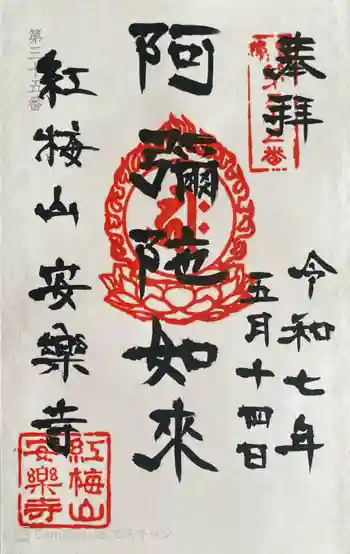 奉拝
令和七年
五月十四日
阿彌陀如來
紅梅山安樂寺
第三十五番
紅梅山
安樂寺